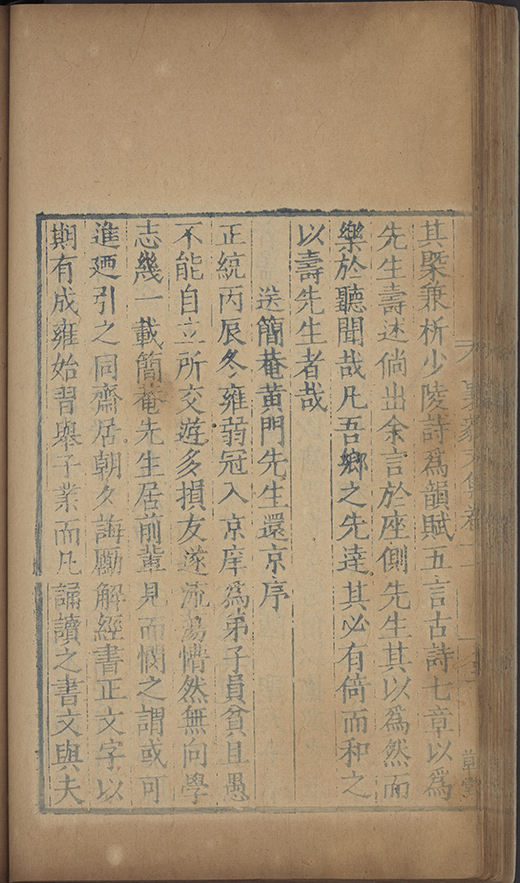 其槩兼析少陵詩爲韻賦五言古詩七章以爲
先生壽述倘出余言於座側先生其以爲然而
樂於聽聞哉凡吾鄉之先達其必有倚而和之
以壽先生者哉
送簡菴黃門先生還京序
正統丙辰冬雍弱冠入京庠爲弟子員貧且愚
不能自立所交遊多損友遂流蕩懵然無向學
志幾一載簡菴先生居前輩見而憫之謂或可
進廼引之同齋居朝夕誨勵解經書正文字以
期有成雍始習舉子業而凡誦讀之書文與夫